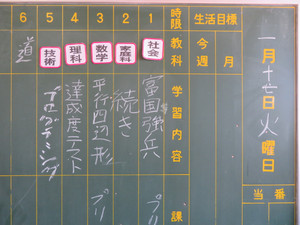 一月十七日火曜日
当番
生活目標
今週
月
時限
教科
学習内容
課
1
社会
富国強兵
プリ
2
家庭科
続き
3
数学
平行四辺形
プリ
4
理科
達成度テスト
5
技術
プログラミング
6
道